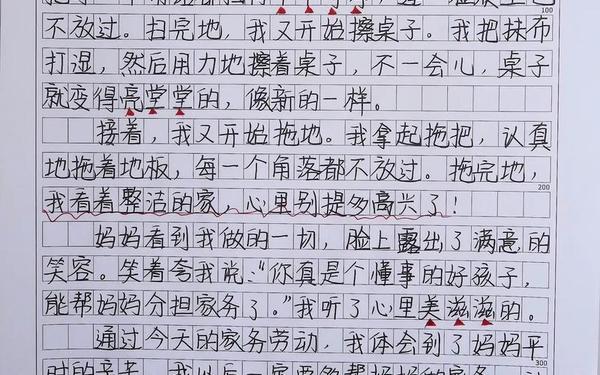 100
不放过。扫完地，我又开始擦桌子。我把抹布
打湿，然后用力地擦着桌子，不一会儿，桌子
就变得亮堂堂的，像新的一样。
接着，我又开始拖地。我拿起拖把，认真
地拖着地板，每一个角落都不放过。拖完地，
200
我看着整洁的家，心里别提多高兴了！
妈妈看到我做的一切，脸上露出了满意的
笑容。笑着夸我说：“你真是个懂事的好孩子，
能帮妈妈分担家务了。”我听了心里美滋滋的。
通过今天的家务劳动，我体会到了妈妈平
300
时的辛苦